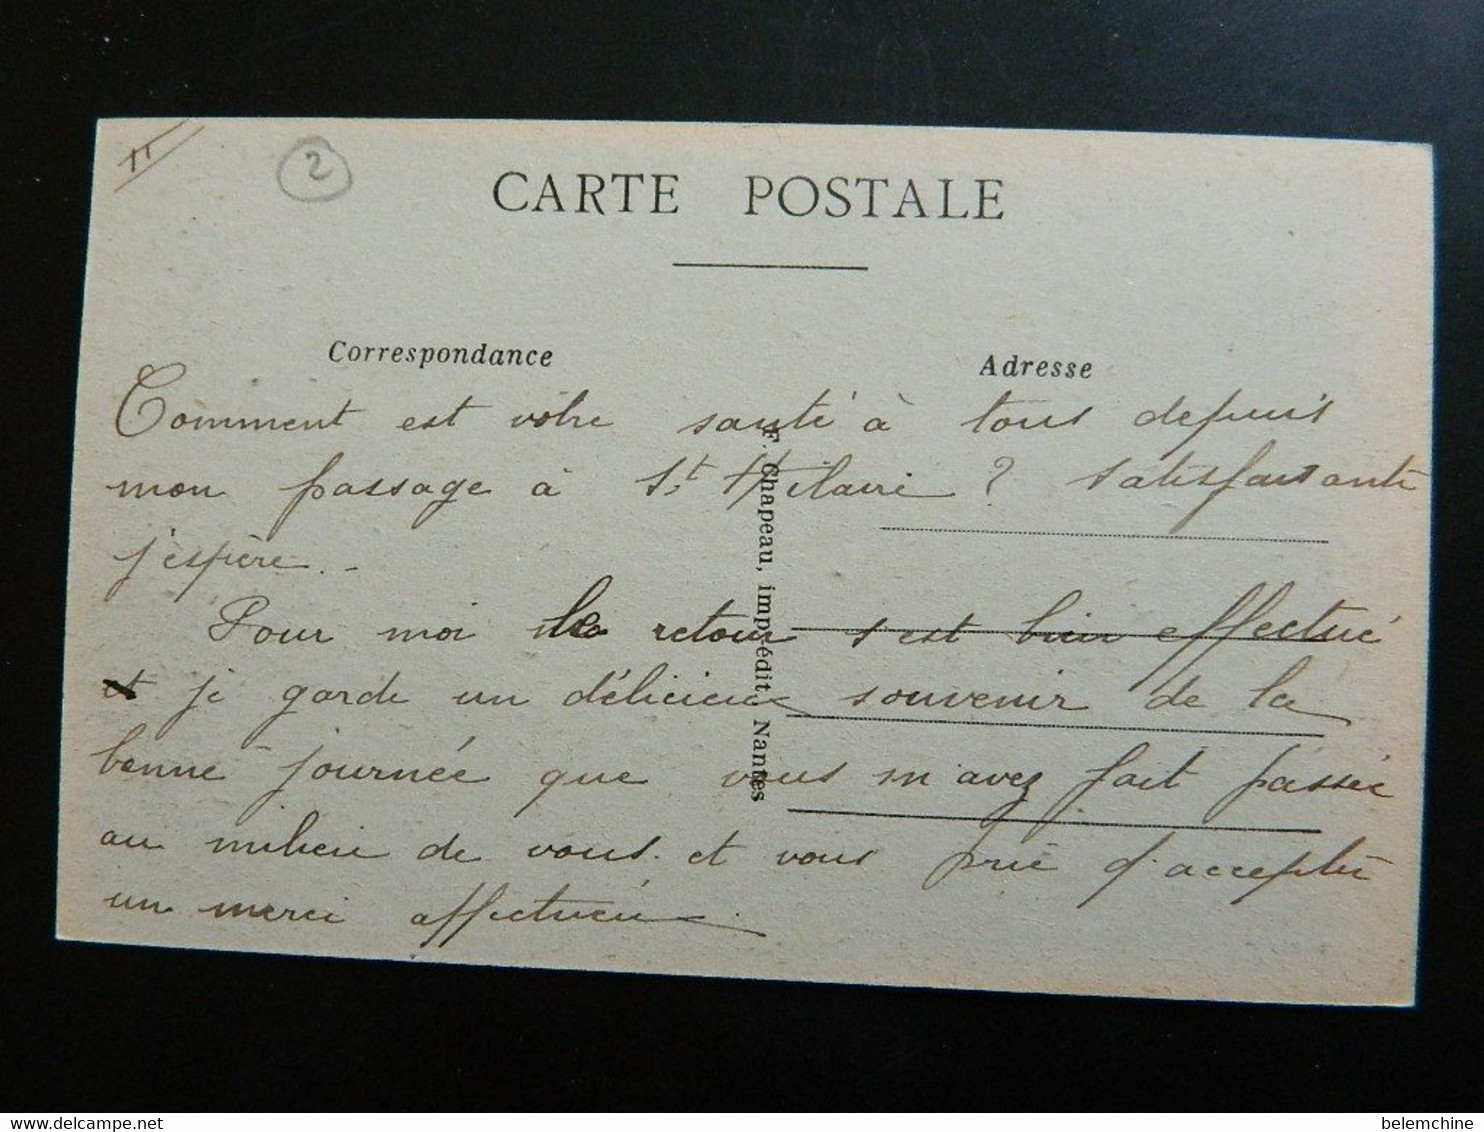 11
2
CARTE POSTALE
Correspondance
Adresse
Comment est votre santé à tous depuis
mon passage à St Hilaire ? satisfaisante
j'espère..
Pour moi le retour s'est bien effectué
et je garde un délicieux souvenir de la
bonne journée que vous m'avez fait passée
au milieu de vous. et vous prie d'accepter
un merci affectueux.
F. Chapeau, imp-édit. Nantes
www.delcampe.net
belemchine